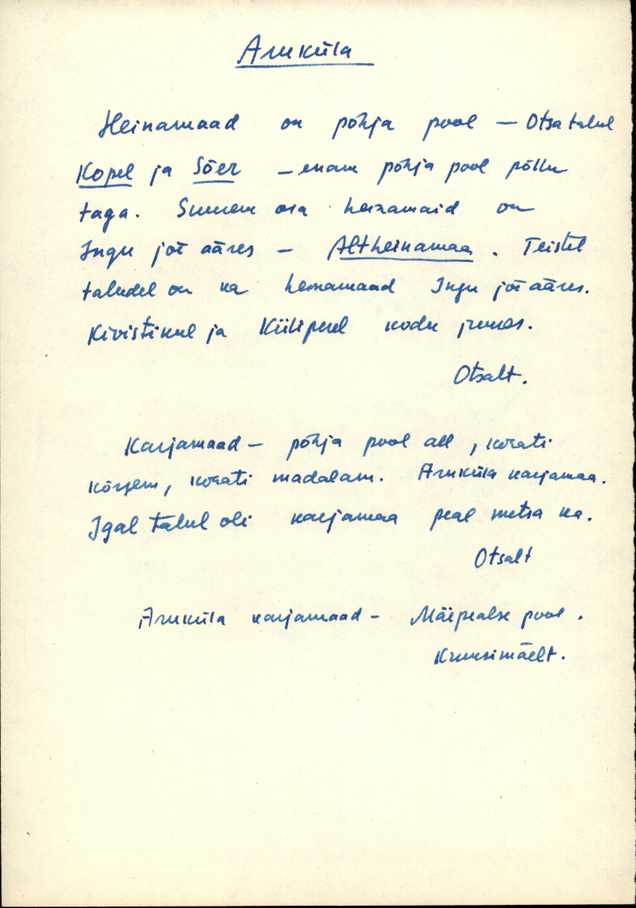 Aruküla
Heinamaad on põhja pool — Otsa talul
Kopel ja Sõer — enam põhja pool põllu
taga. Suurem osa heinamaid on
Ingu jõe ääres — Altheinamaa. Teistel
taludel on ka heinamaad Ingu jõe ääres.
Kivistikul ja Kiiliperel kodu juures.
Otsalt.
Karjamaad — põhja pool all, korati
kõrgem, korati madalam. Aruküla karjamaa.
Igal talul oli karjamaa peal metsa ka.
Otsalt
Aruküla karjamaad — Mäepealse pool.
Kruusimäelt.